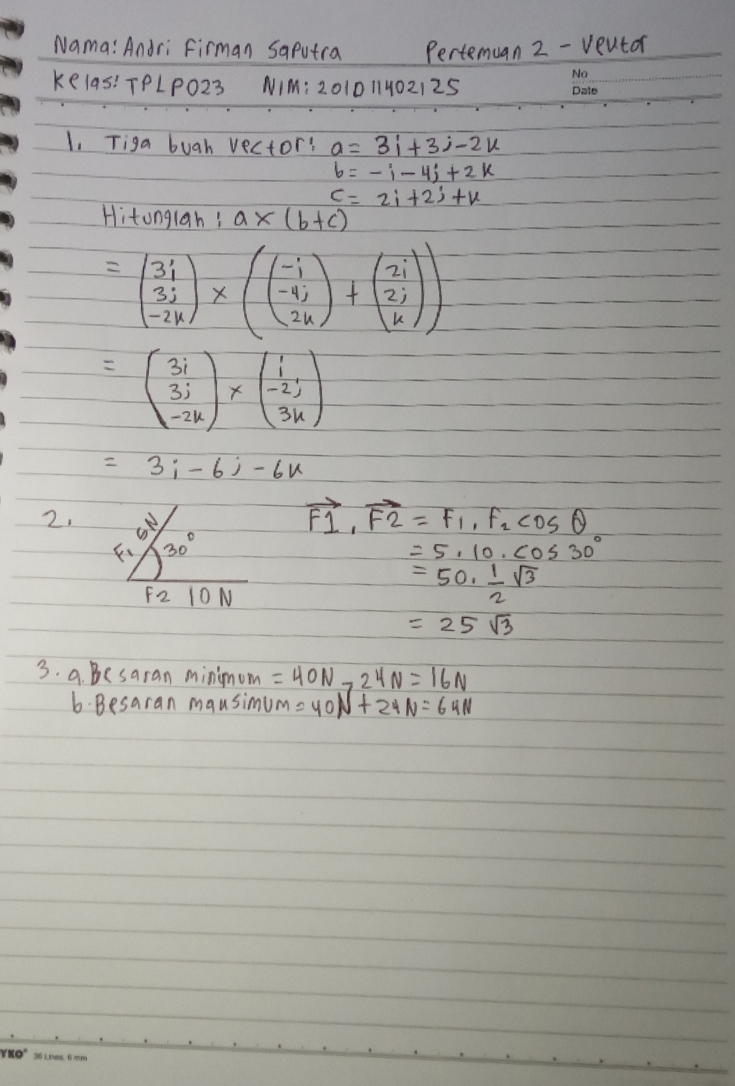 Nama: Andri Firman Saputra Pertemuan 2 - Vektor
Kelas: TPLP023 NIM: 201011402125
No
Date
1. Tiga buah vector: a = 3i + 3j - 2k
b = -i - 4j + 2k
c = 2i + 2j + k
Hitunglah : a x (b+c)
= (3i 3j -2k) x ((-i -4j 2k) + (2i 2j k))
= (3i 3j -2k) x (i -2j 3k)
= 3i - 6j - 6k
2. F1 5N 30° F2 10 N
F1 . F2 = F1 . F2 cos θ
= 5 . 10 . cos 30°
= 50 . 1/2 √3
= 25 √3
3. a. Besaran minimum = 40N - 24N = 16N
b. Besaran maksimum = 40N + 24N = 64N
36 Lines, 6 mm